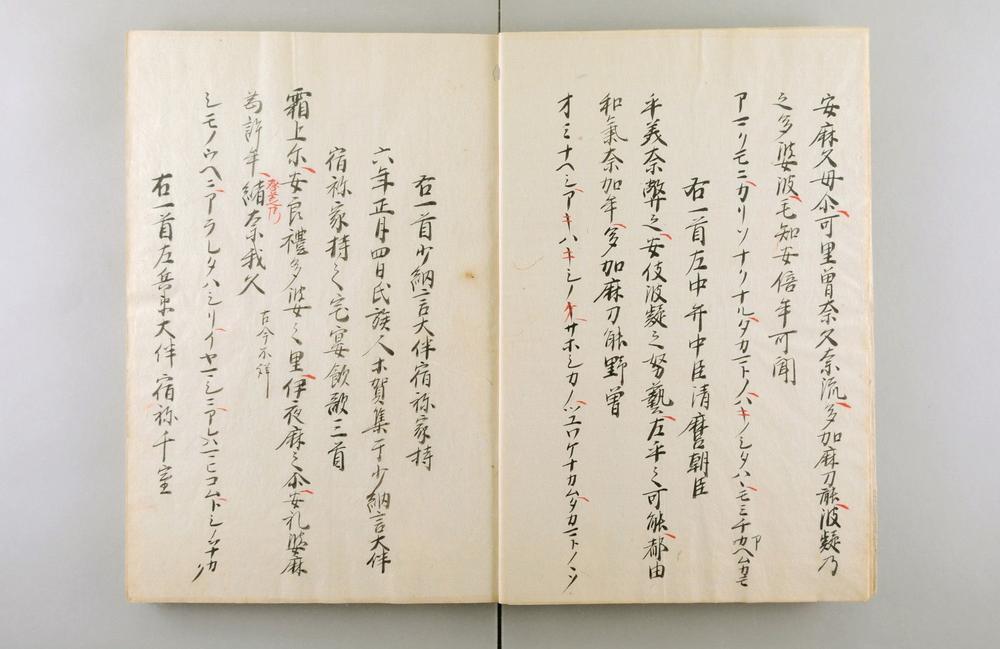 安麻久母尓可里曽奈久奈流多加麻刀能波疑乃
之多婆波毛知安倍牟可聞
アマクモニカリソナクナルタカマトノハキノシタハヽモミチカヘムカモ
右一首左中弁中臣清麿朝臣
乎美奈弊之安伎波疑之努藝左乎之可能都由
和氣奈加牟多加麻刀能野曽
オミナヘシアキハキシノキサホシカノツユワケナカムタカマトノノソ
右一首少納言大伴宿祢家持
六年正月四日氏族人等賀集于少納言大伴
宿祢家持之宅宴飲歌三首
霜上尓安良禮多婆之里伊夜麻之尓安礼婆麻
為許牟緒奈我久 古今未詳
シモノウヘニアラレタハシリイヤマシニアレハマヒコムトシノヲナカク
右一首左兵衛大伴宿祢千室